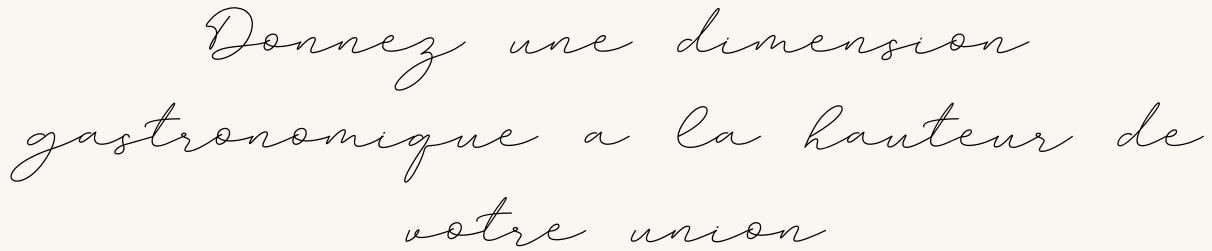 Donnez une dimension
gastronomique a la hauteur de
votre union